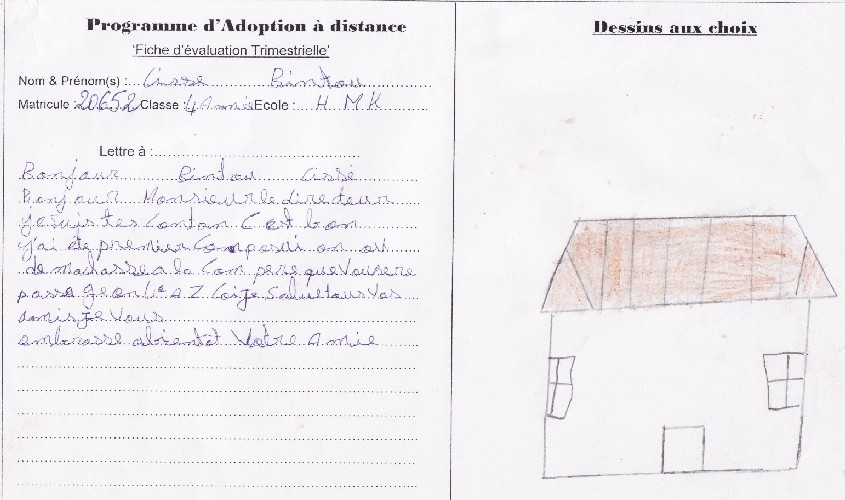 Programme d'Adoption à distance
'Fiche d'évaluation Trimestrielle'
Nom & Prénom(s) : Cissé Bintou
Matricule : 20652 Classe : 4 Année Ecole : H M K
Lettre à :
Bonjour Bintou Cissé
Bonjour Monsieur le directeur
je suis tes Contan C est bon
j'ai été premier Composition
de ma classe a la que Vous
passa
amis je Vous
embrasse abientôt Votre Amie
Dessins aux choix